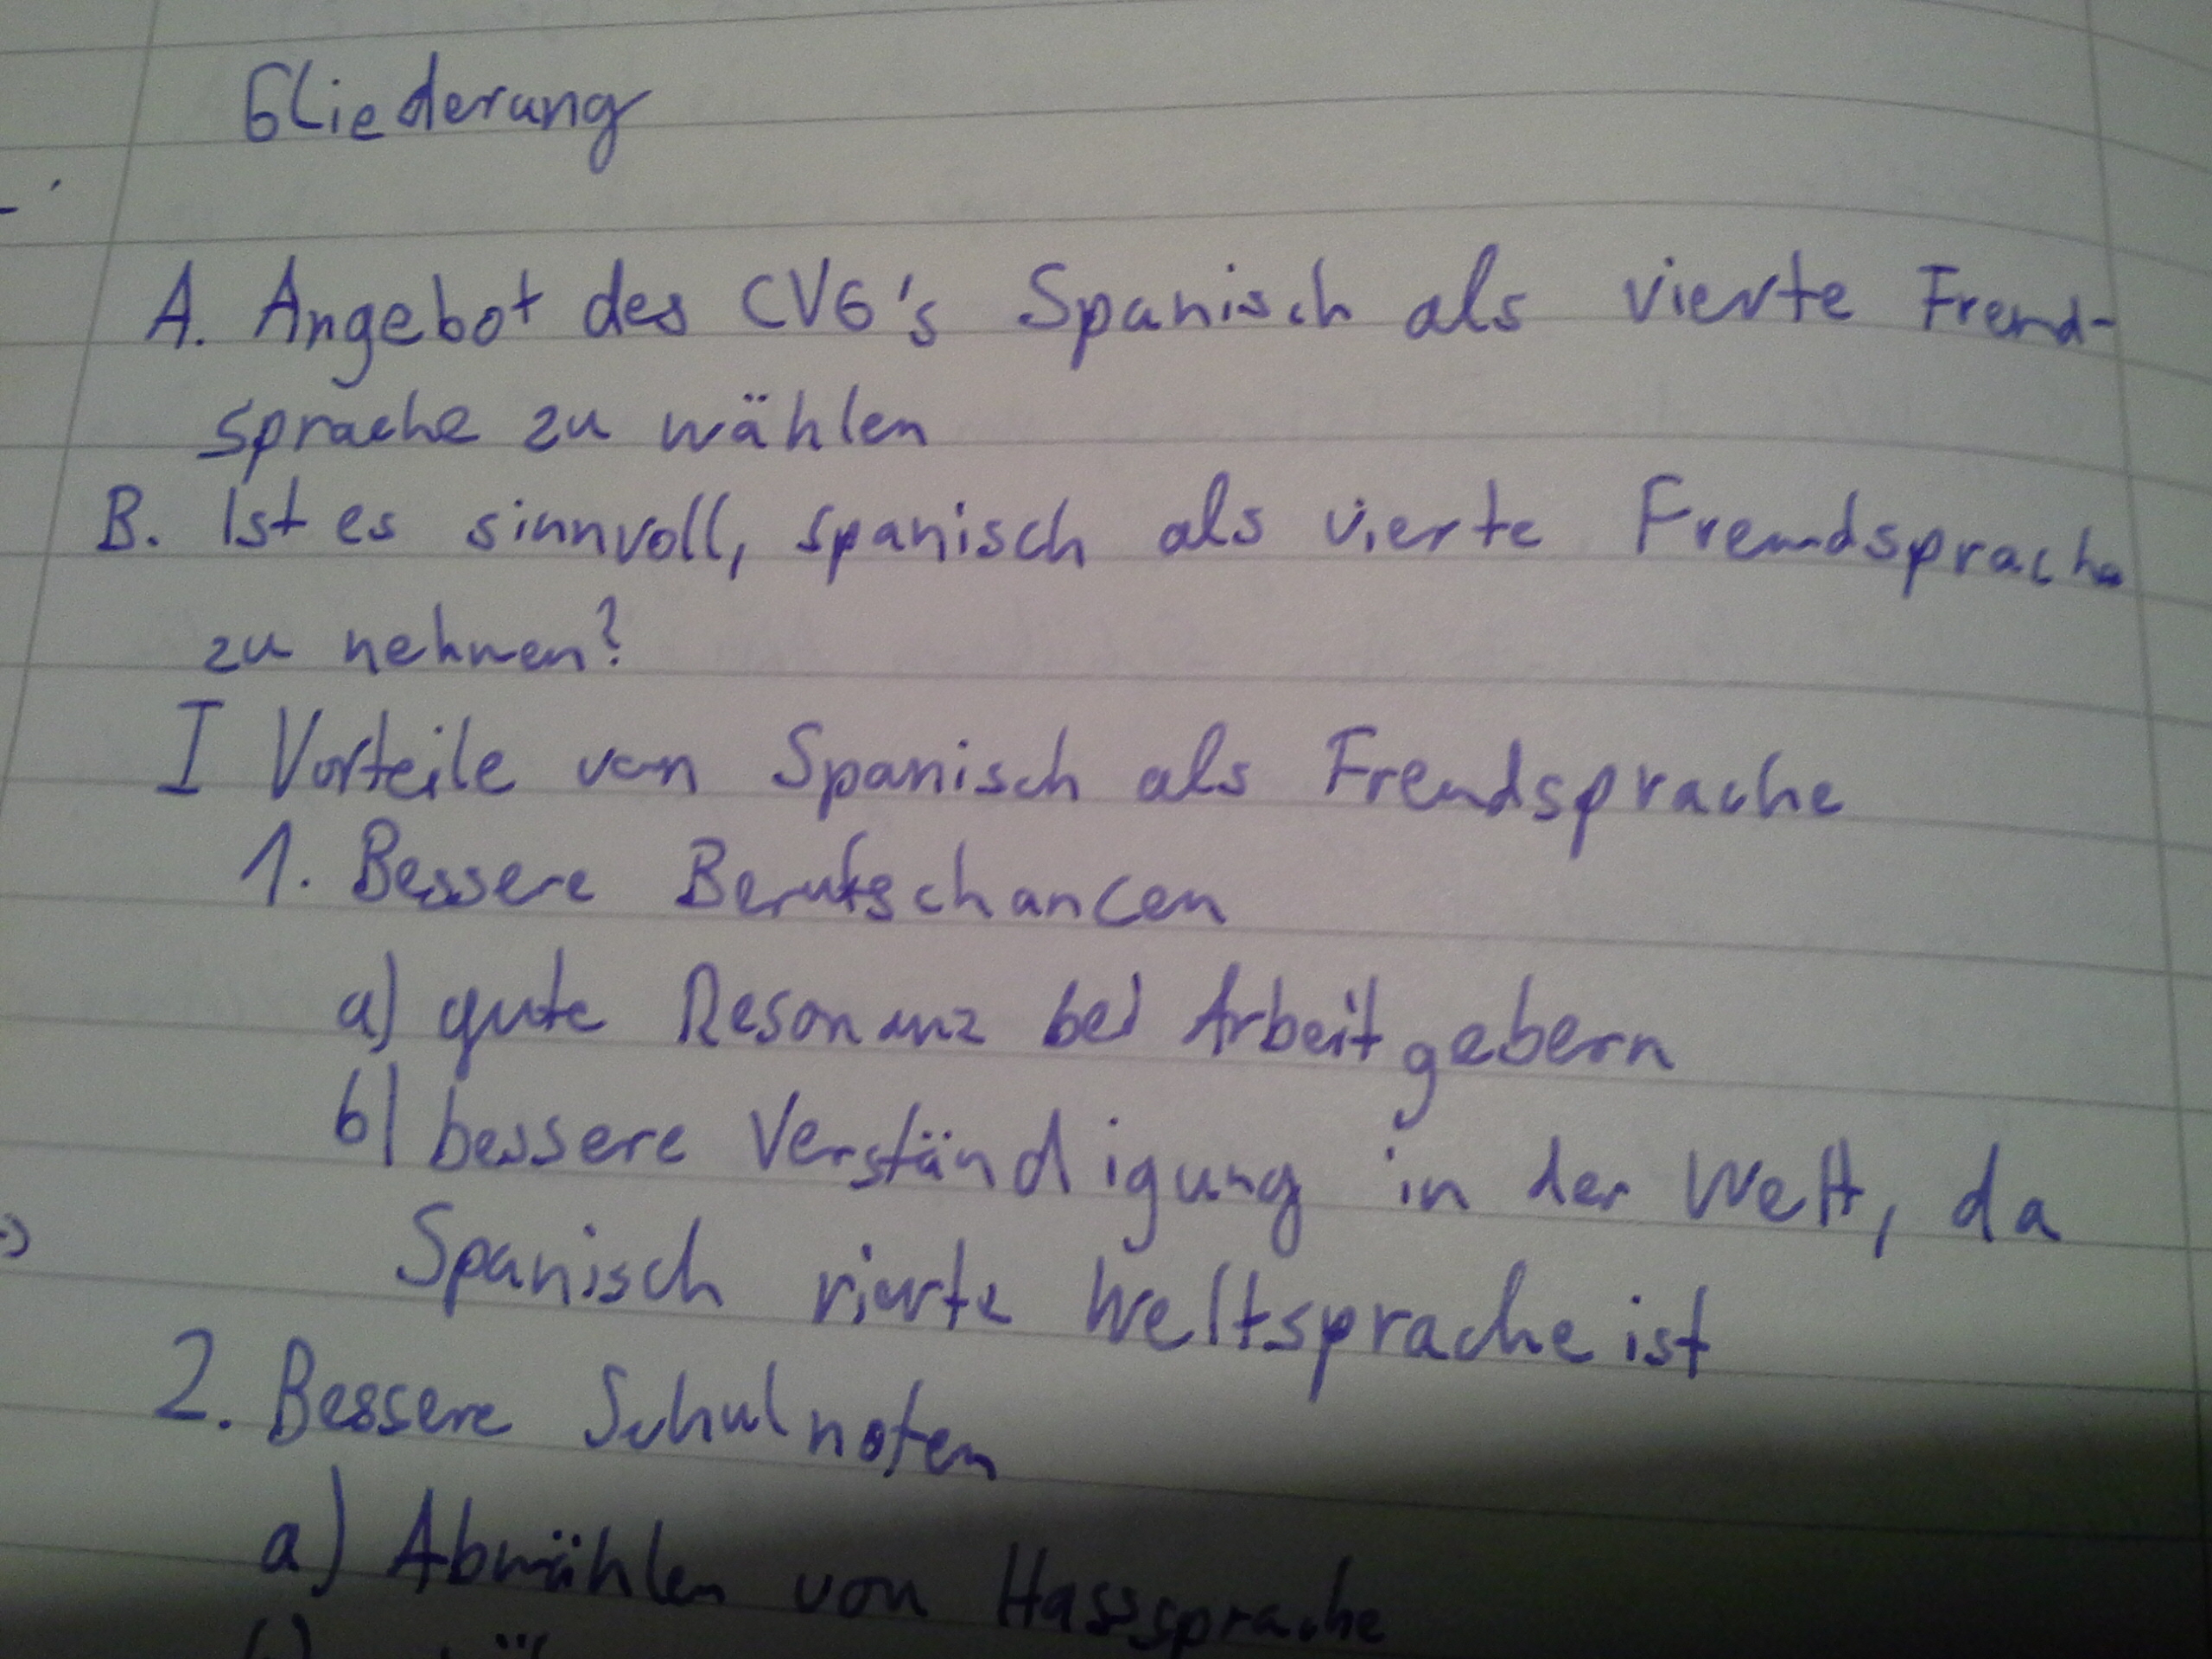 Gliederung
A. Angebot des CVG's Spanisch als vierte Fremd-
sprache zu wählen
B. Ist es sinnvoll, spanisch als vierte Fremdsprache
zu nehmen?
I Vorteile von Spanisch als Fremdsprache
1. Bessere Berufschancen
a) gute Resonanz bei Arbeitgebern
b) bessere Verständigung in der Welt, da
Spanisch vierte Weltsprache ist
2. Bessere Schulnoten
a) Abwählen von Hasssprache